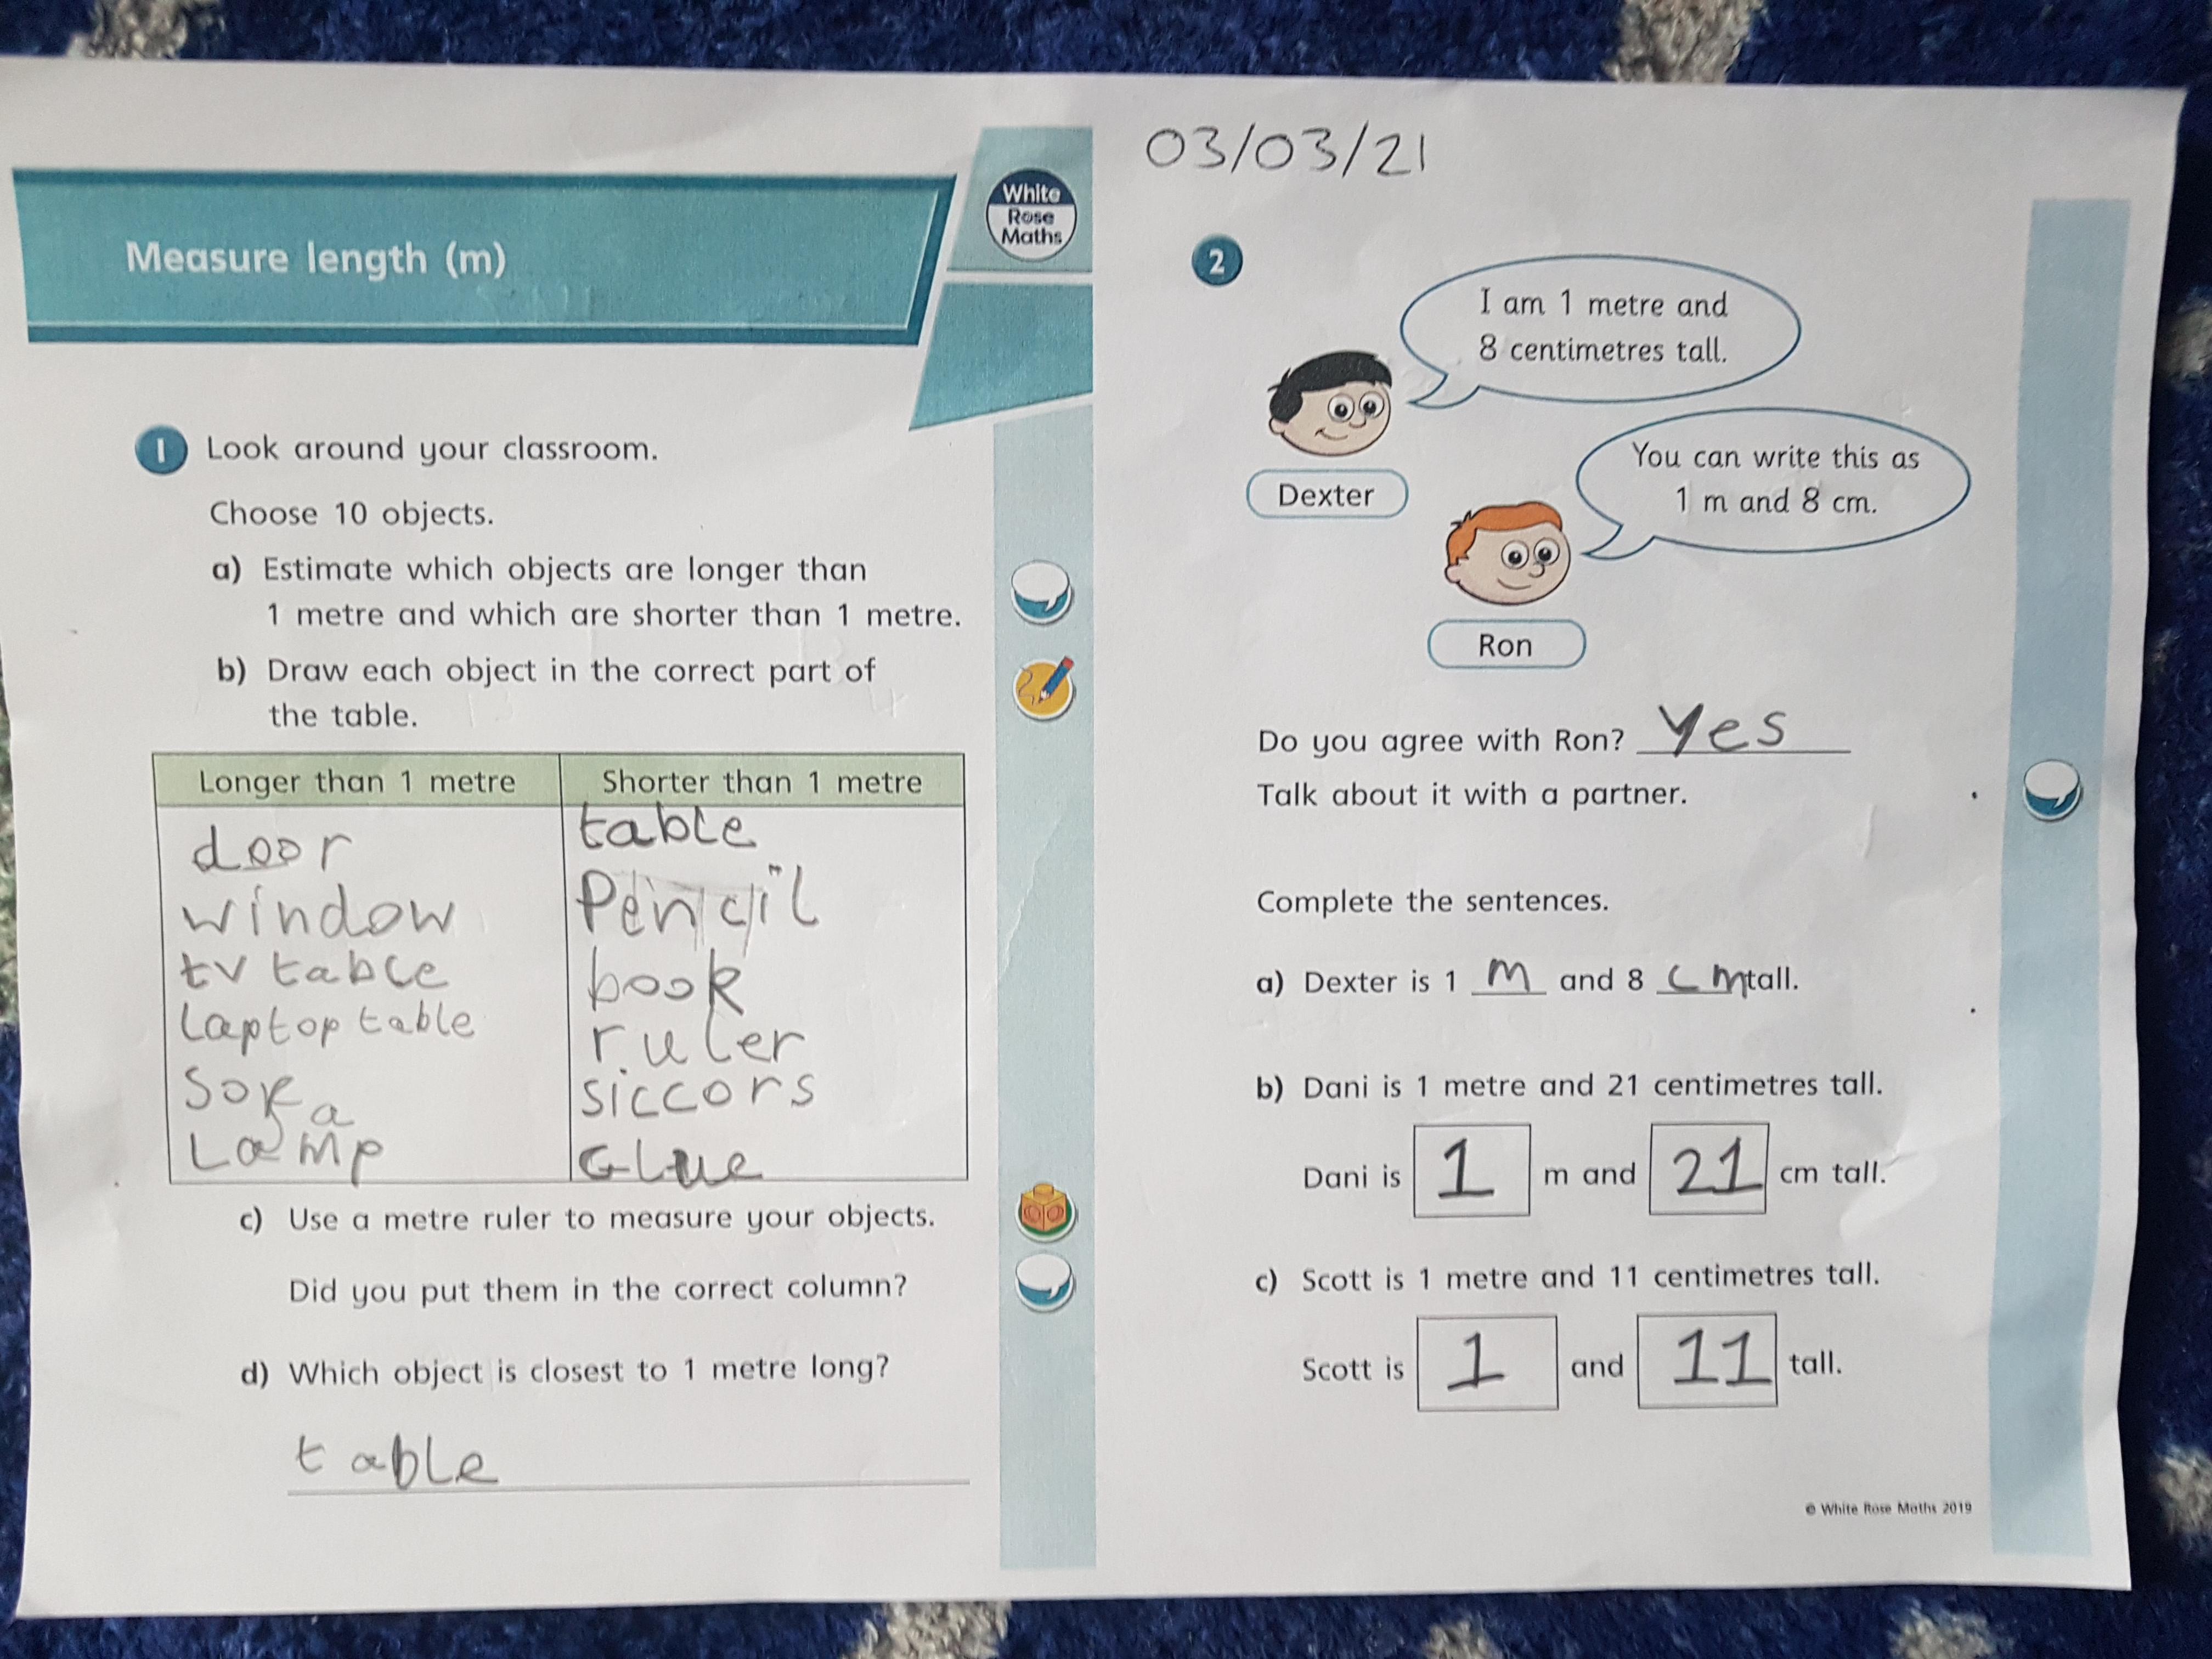 03/03/21
Measure length (m)
White
Rose
Maths
1 Look around your classroom.
Choose 10 objects.
a) Estimate which objects are longer than
1 metre and which are shorter than 1 metre.
b) Draw each object in the correct part of
the table.
Longer than 1 metre
door
window
tv table
Laptop table
Sofa
Lamp
Shorter than 1 metre
table
Pencil
book
ruler
siccors
Glue
c) Use a metre ruler to measure your objects.
Did you put them in the correct column?
d) Which object is closest to 1 metre long?
table
2
I am 1 metre and
8 centimetres tall.
Dexter
You can write this as
1 m and 8 cm.
Ron
Do you agree with Ron? Yes
Talk about it with a partner.
Complete the sentences.
a) Dexter is 1 m and 8 cm tall.
b) Dani is 1 metre and 21 centimetres tall.
Dani is 1 m and 21 cm tall.
c) Scott is 1 metre and 11 centimetres tall.
Scott is 1 and 11 tall.
© White Rose Maths 2019